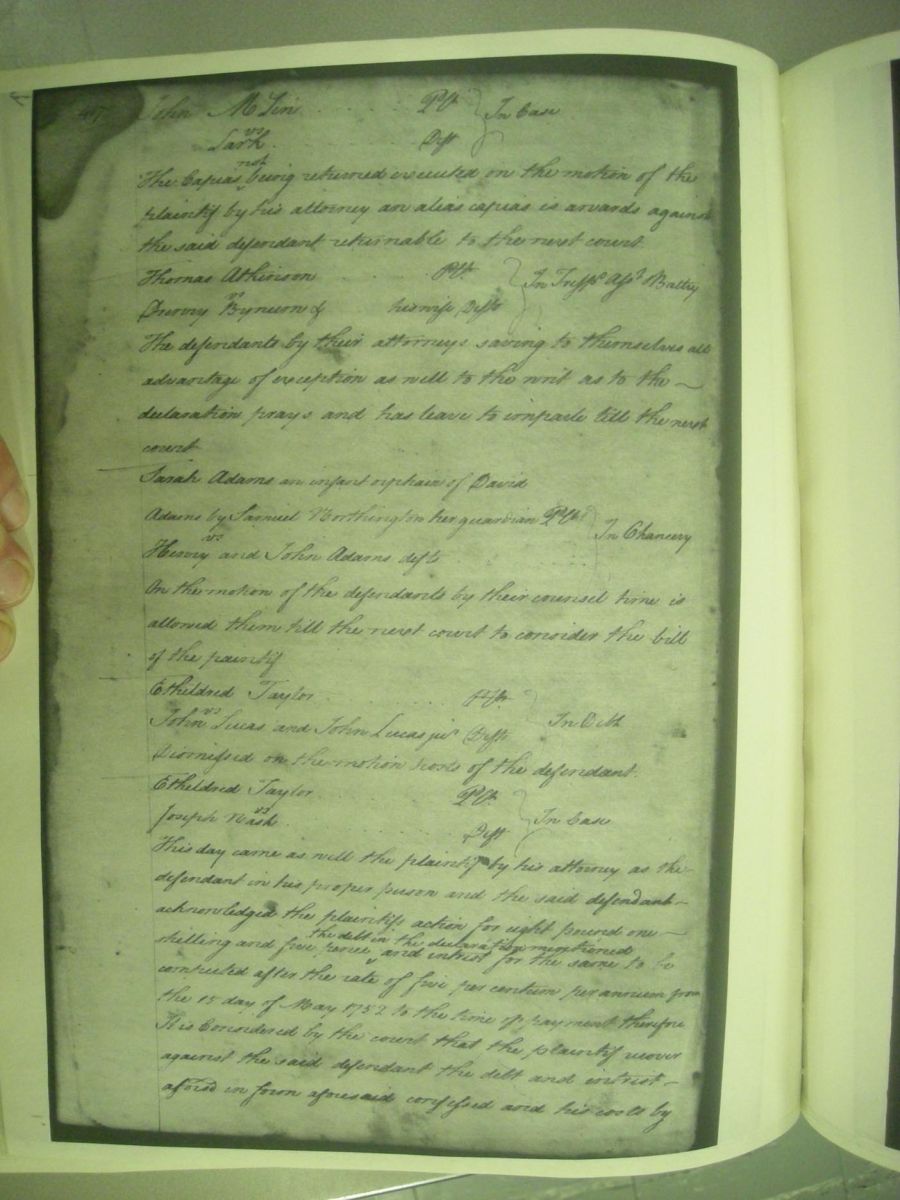 John McLin . . . . . Plt } In Case
vs
Lark . . . . . Deft
not
The Capias ^ being returned executed on the motion of the
plaintif by his attorney an alias capias is awards against
the said defendant returnable to the next court
Thomas Atkinson . . . . . Plt } In Tresps Asst & Battry
vs
Drewry Bynum & his wife Defts
The defendants by their attorneys saving to themselves all
advantage of exception as well to the writ as to the —
declaration prays and has leave to imparle till the next
court
Sarah Adams an infant orphain of David
Adams by Samuel Northington her guardian Plt } In Chancery
vs
Henry and John Adams defts
On the motion of the defendants by their counsel time is
allowed them till the next court to consider the bill
of the plaintif
Etheldred Taylor . . . . . Plt } In Debt
vs
John Lucas and John Lucas junr Defts
Dismissed on the motion & costs of the defendant.
Etheldred Taylor . . . . . Plt } In Case
vs
Joseph Nash . . . . . Deft
This day came as well the plaintif by his attorney as the
defendant in his proper person and the said defendant —
acknowledged the plaintifs action for eight pound one —
the debt in the declaration mentioned
shilling and five pence ^ and intrist for the same to be
computed after the rate of five per centum per annum from
the 15 day of May 1752 to the time of payment therefore
It is Considered by the court that the plaintif recover
against the said defendant the debt and intrist —
aforsd in form aforesaid confessed and his costs by